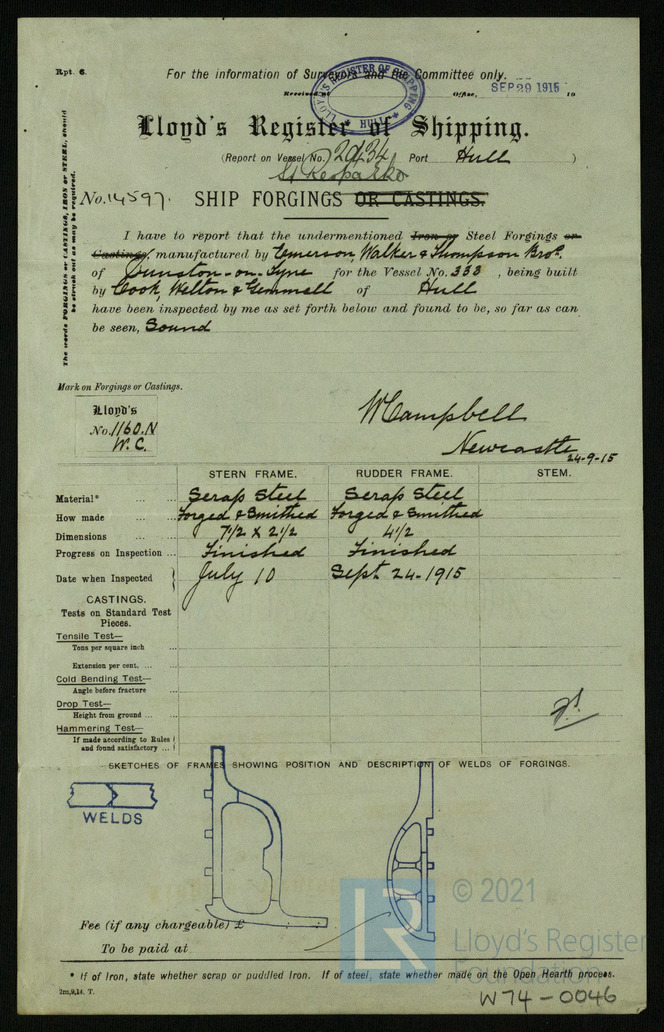 Rpt. 6.
For the information of Surveyors and the Committee only.
Received at Office, SEP 29 1915 19
LLOYD'S REGISTER OF SHIPPING
★ HULL ★
Lloyd's Register of Shipping.
(Report on Vessel No. 29434 Port Hull )
No. 14597. SHIP FORGINGS OR CASTINGS.
The words FORGINGS or CASTINGS, IRON or STEEL, should be struck out as may be required.
I have to report that the undermentioned Iron or Steel Forgings or
Castings, manufactured by Emerson, Walker & Thompson Bros.
of Dunston-on-Tyne for the Vessel No. 333 , being built
by Cook, Welton & Gemmell of Hull
have been inspected by me as set forth below and found to be, so far as can
be seen, Sound
Mark on Forgings or Castings.
Lloyd's
No. 1160.N
W.C.
W Campbell
Newcastle
24-9-15
STERN FRAME. RUDDER FRAME. STEM.
Material* ... ... Scrap Steel Scrap Steel
How made ... ... Forged & Smithed Forged & Smithed
Dimensions ... ... 7 1/2 x 2 1/2 4 1/2
Progress on Inspection ... Finished Finished
Date when Inspected } July 10 Sept 24-1915
CASTINGS.
Tests on Standard Test
Pieces.
Tensile Test—
Tons per square inch ...
Extension per cent. ... ...
Cold Bending Test—
Angle before fracture ...
Drop Test—
Height from ground ... ...
Hammering Test—
If made according to Rules
and found satisfactory ...
SKETCHES OF FRAMES SHOWING POSITION AND DESCRIPTION OF WELDS OF FORGINGS.
WELDS
Fee (if any chargeable) £
To be paid at
LR
© 2021
Lloyd's Register
Foundation
* If of Iron, state whether scrap or puddled Iron. If of steel, state whether made on the Open Hearth process.
2m,9,14. T.
W74-0046